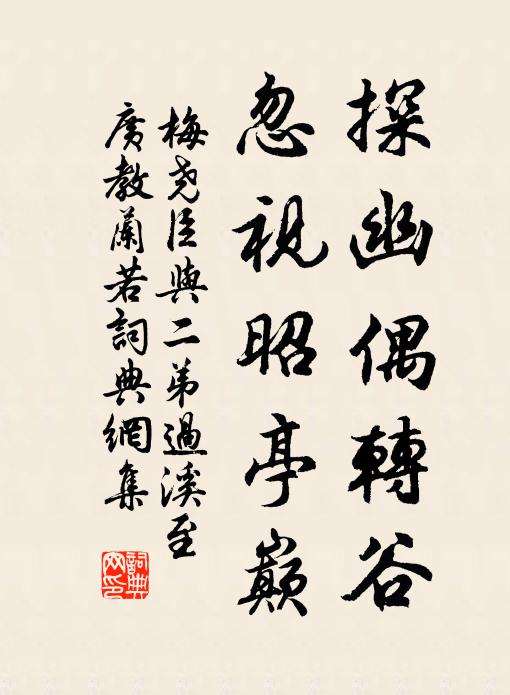 探幽偶轉谷
忽視昭亭巔
梅堯臣與二弟過溪至
廣教蘭若詞典網集
詞典網印